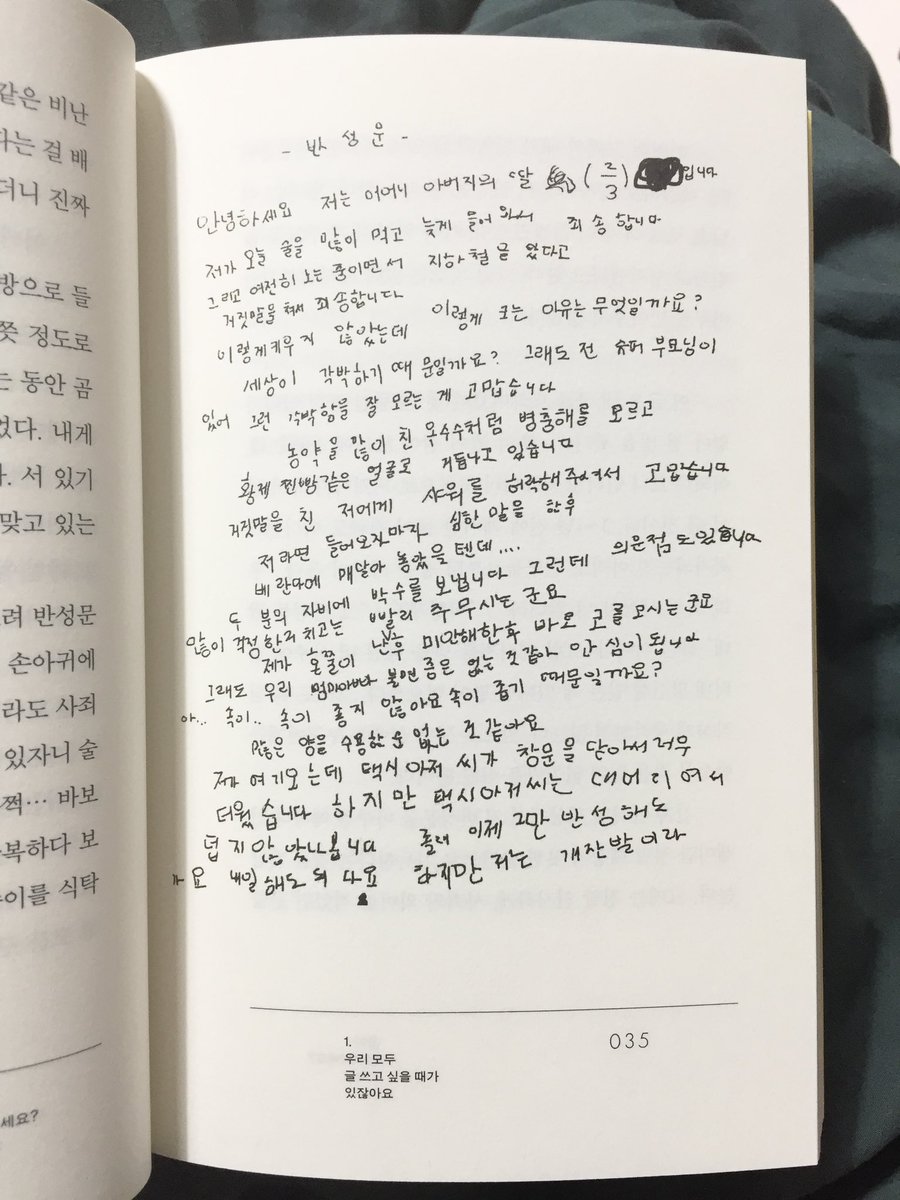 같은 비난
다는 걸 배
더니 진짜
방으로 들
쯧 정도로
는 동안 곰
었다. 내게
. 서 있기
맞고 있는
려 반성문
손아귀에
라도 사죄
있자니 술
쩍… 바보
복하다 보
이를 식탁
세요?
- 반 성 문 -
안녕하세요 저는 어머니 아버지의 딸 (2/3) 입니다
저가 오늘 술을 많이 먹고 늦게 들어 와서 죄송합니다
그리고 여전히 노는 중이면서 지하철을 탔다고
거짓말을 쳐서 죄송합니다
이렇게키우지 않았는데 이렇게 크는 이유는 무엇일까요?
세상이 각박하기 때문일까요? 그래도 전 슈퍼 부모님이
있어 그런 각박함을 잘 모르는 게 고맙습니다
농약을 많이 친 옥수수처럼 병충해를 모르고
황제 찐빵같은 얼굴로 거듭나고 있습니다
거짓말을 친 저에게 샤워를 허락해주여서 고맙습니다
저라면 들어오자마자 심한말을 한후
베란다에 매달아 놓았을 텐데....
두 분의 자비에 박수를 보냅니다 그런데 의문점도있습니다
많이 걱정한거 치고는 빨리 주무시는 군요
제가 혼쭐이 난후 미안해한후 바로 코를 고시는군요
그래도 우리 엄마아빠 불면증은 없는 것같아 안심이 됩니다
아... 속이.. 속이 좋지 않아요 속이 좁기 때문일까요?
많은 양을 수용할 순 없는 것 같아요
제가 여기오는데 택시 아저씨가 창문을 닫아서 너무
더웠습니다 하지만 택시아저씨는 대머리여서
덥지 않았나봅니다 졸려 이제 그만 반성해도
가요 내일 해도 되나요 하지만 저는 개잔발이라
1.
우리 모두
글 쓰고 싶을 때가
있잖아요
035